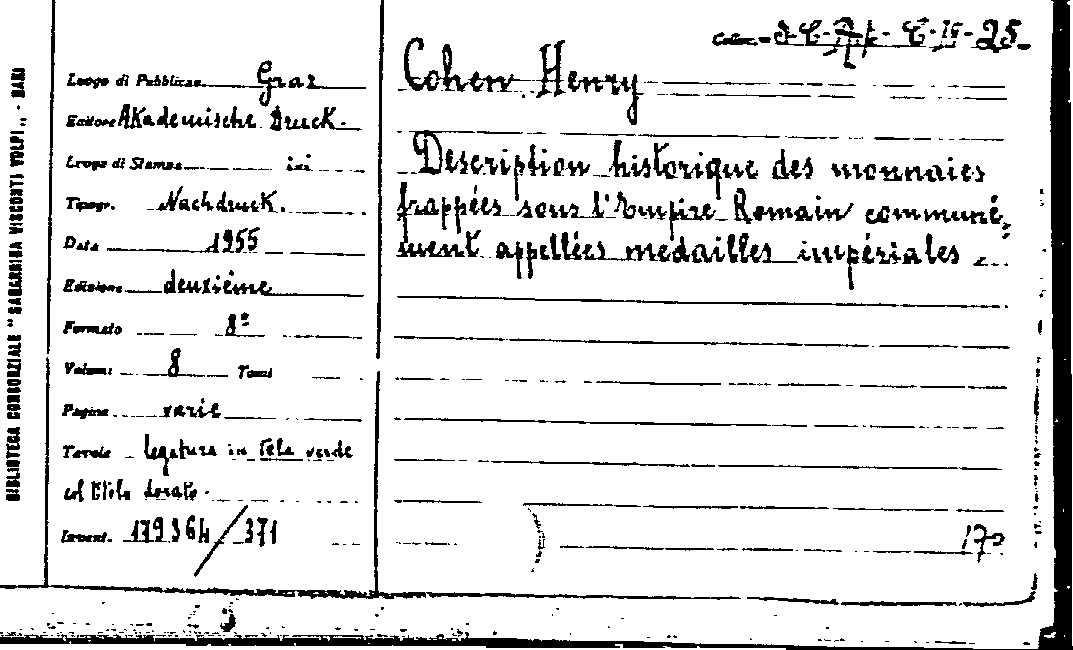 BIBLIOTECA CONSORZIALE "SAGARRIGA VISCONTI VOLPI„ - BARI
Luogo di Pubblicaz. Graz
Editore Akademische Druck.
Luogo di Stampa ivi
Tipogr. Nachdruck.
Data 1955
Edizione deuxième
Formato 8º
Volumi 8 Tomi
Pagine varie
Tavole legatura in tela verde
col titolo dorato.
Invent. 179364/371
C-IV-25
Cohen Henry
Description historique des monnaies
frappées sous l'Empire Romain communé,
ment appellées medailles impériales
170